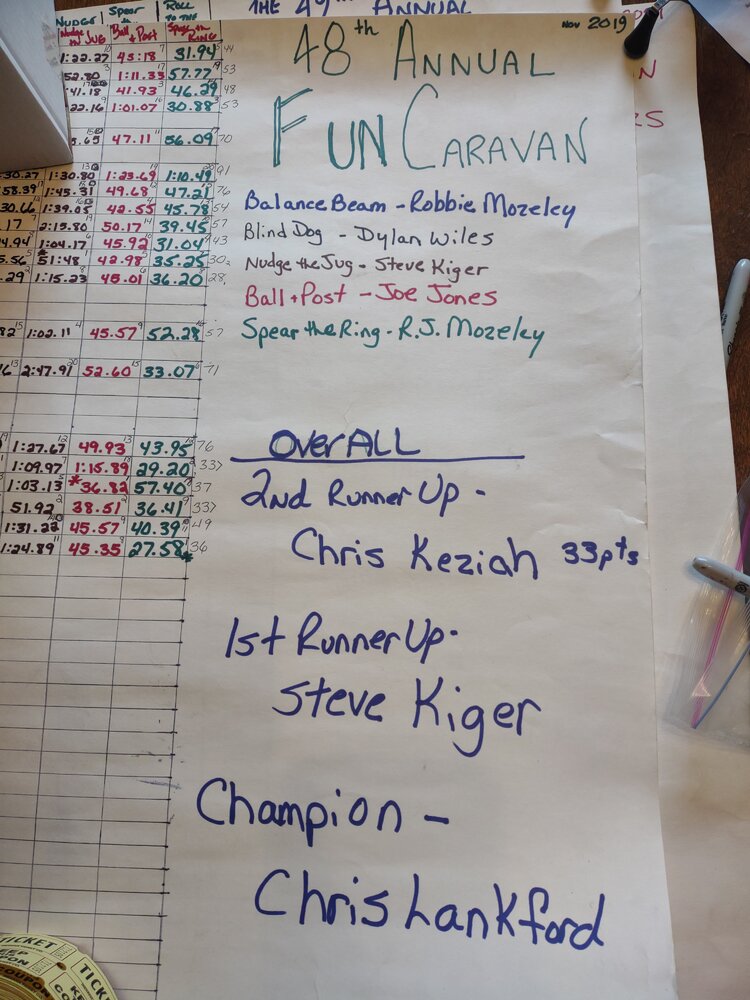 THE 49th ANNUAL
NUDGE Spear ROLL
TO THE
Nudge the JUG Ball + Post Spear the RING
1:22.27 43:18 31.94 44
52.80 1:11.33 57.77 53
:41.18 41.93 46.29 48
22.16 1:01.07 30.88 53
5.65 47.11 56.09 70
:30.27 1:30.80 1:23.69 1:10.49 91
:58.39 1:45.31 49.68 47.21 76
30.66 1:39.05 42.55 45.78 54
.17 2:15.80 50.17 39.45 57
4.94 1:04.17 45.92 31.04 43
5.56 51:48 42.98 35.25 30
.29 1:15.23 45.01 36.20 28
82 1:02.11 45.57 52.28 57
6 2:47.91 52.60 33.07 71
1:27.67 49.93 43.95 76
1:09.97 1:15.89 29.20 33
1:03.13 *36.82 57.40 37
51.92 38.51 36.41 33
1:31.22 45.57 40.39 49
1:24.89 45.35 27.58 36
NOV 2019
48th ANNUAL
FUN CARAVAN
Balance Beam - Robbie Mozeley
Blind Dog - Dylan Wiles
Nudge the Jug - Steve Kiger
Ball + Post - Joe Jones
Spear the Ring - R.J. Mozeley
OverALL
2nd Runner Up -
Chris Keziah 33pts
1st Runner Up -
Steve Kiger
Champion -
Chris Lankford
N
RS
TICKET
KEEP
COUPON
TICK